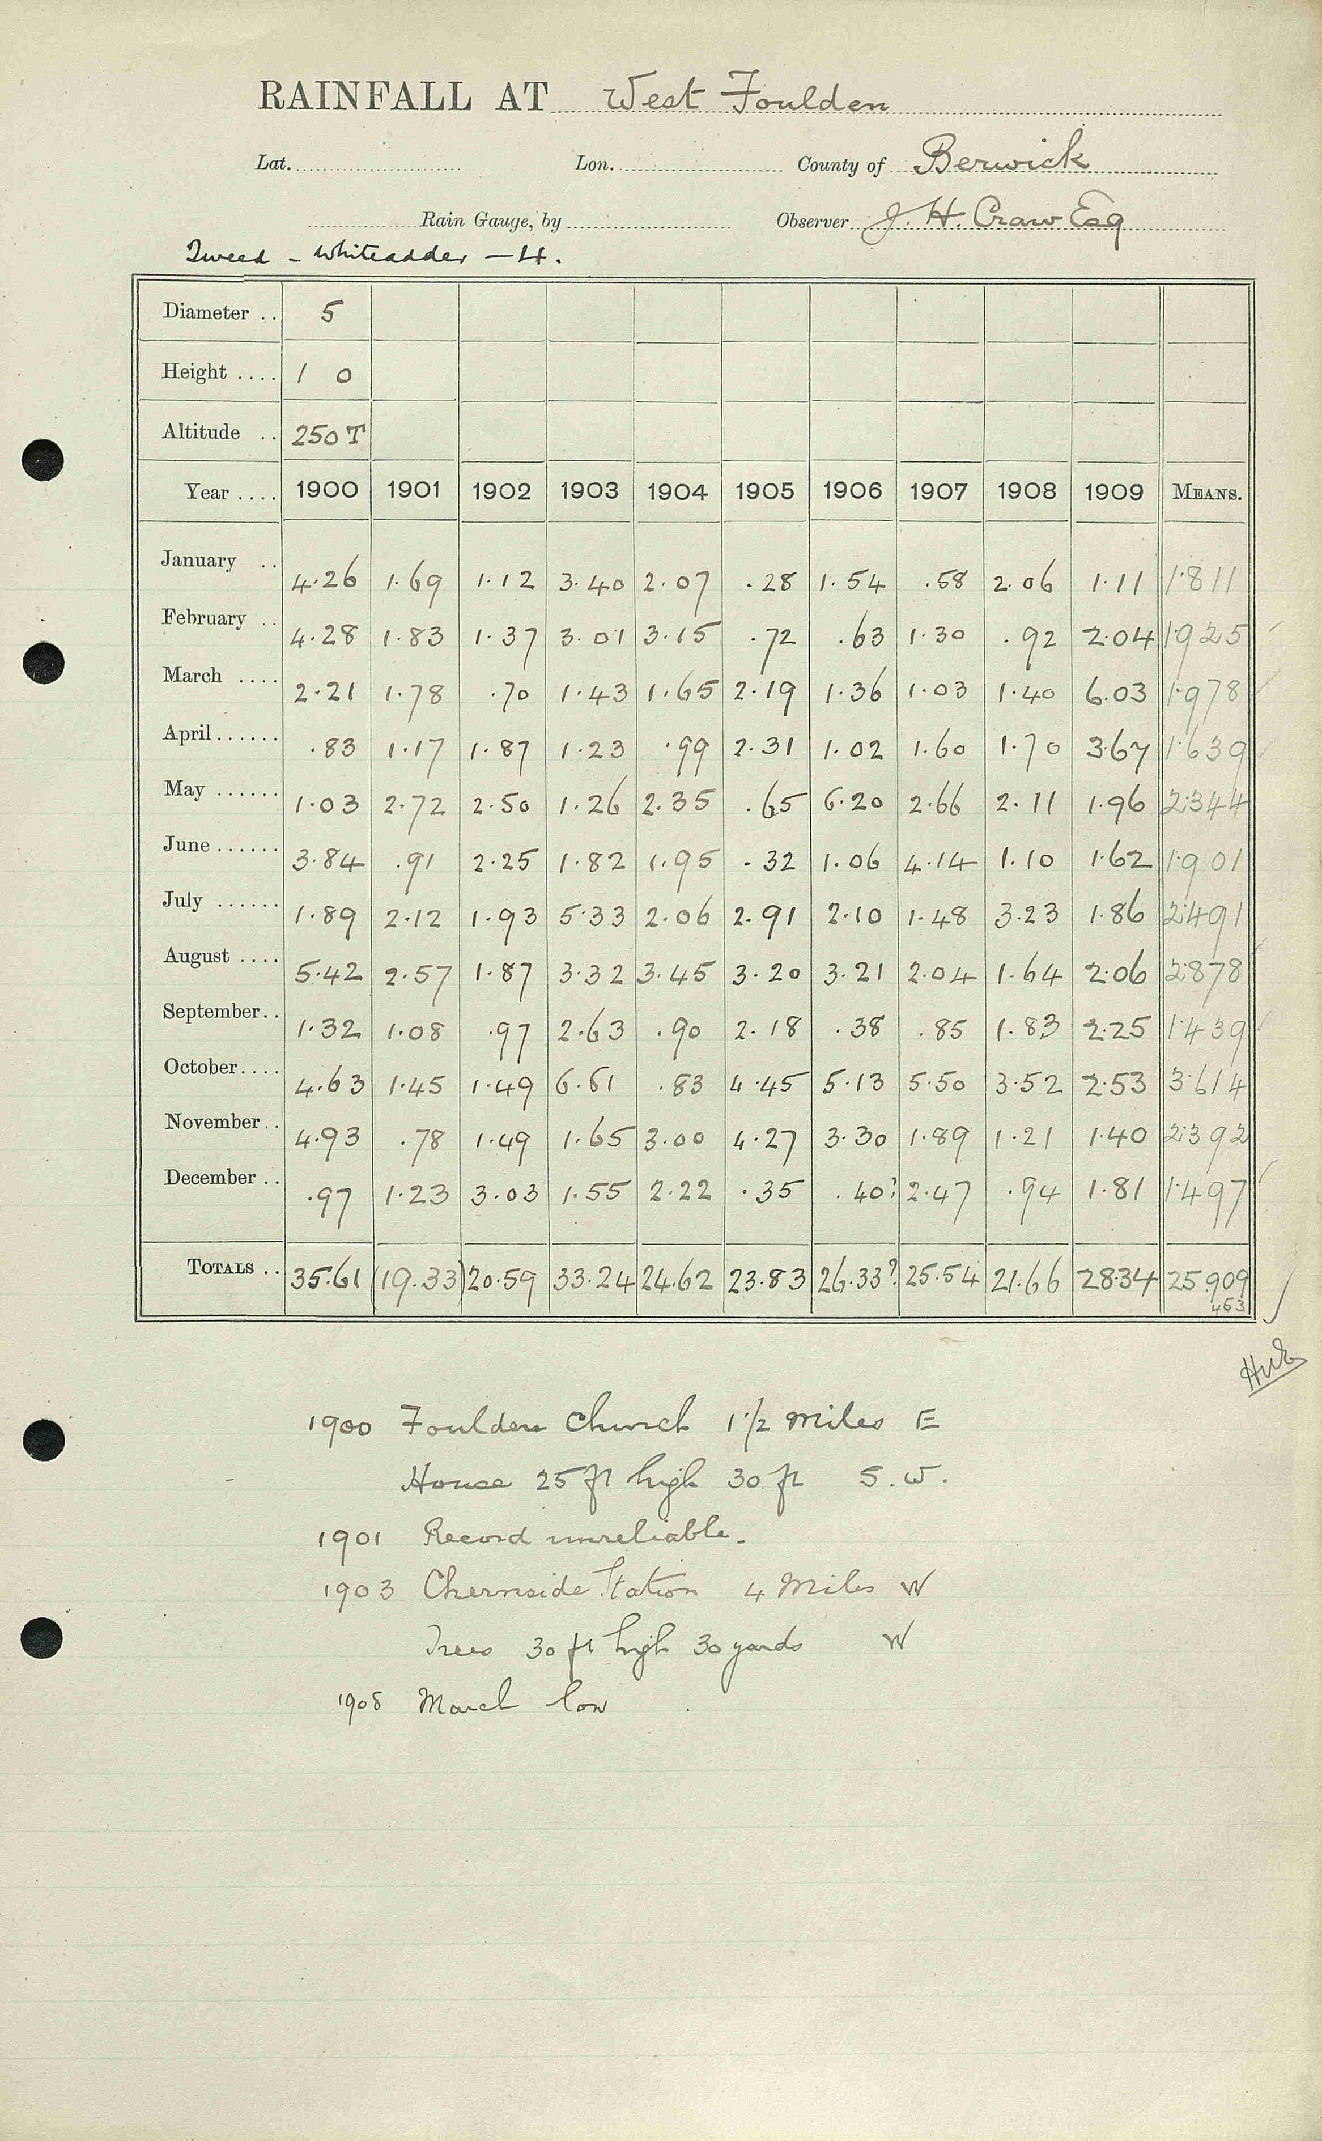 RAINFALL AT West Foulden
Lat. Lon. County of Berwick
Rain Gauge, by Observer J. H. Craw Esq
Tweed - Whiteadder - 4.
Diameter .. 5
Height .... 1 0
Altitude .. 250 T
Year .... 1900 1901 1902 1903 1904 1905 1906 1907 1908 1909 MEANS.
January .. 4.26 1.69 1.12 3.40 2.07 .28 1.54 .58 2.06 1.11 1.811
February .. 4.28 1.83 1.37 3.01 3.15 .72 .63 1.30 .92 2.04 1.925
March .... 2.21 1.78 .70 1.43 1.65 2.19 1.36 1.03 1.40 6.03 1.978
April ...... .83 1.17 1.87 1.23 .99 2.31 1.02 1.60 1.70 3.67 1.639
May ...... 1.03 2.72 2.50 1.26 2.35 .65 6.20 2.66 2.11 1.96 2.344
June ...... 3.84 .91 2.25 1.82 1.95 .32 1.06 4.14 1.10 1.62 1.901
July ...... 1.89 2.12 1.93 5.33 2.06 2.91 2.10 1.48 3.23 1.86 2.491
August .... 5.42 2.57 1.87 3.32 3.45 3.20 3.21 2.04 1.64 2.06 2.878
September .. 1.32 1.08 .97 2.63 .90 2.18 .38 .85 1.83 2.25 1.439
October .... 4.63 1.45 1.49 6.61 .83 4.45 5.13 5.50 3.52 2.53 3.614
November .. 4.93 .78 1.49 1.65 3.00 4.27 3.30 1.89 1.21 1.40 2.392
December .. .97 1.23 3.03 1.55 2.22 .35 .40? 2.47 .94 1.81 1.497
TOTALS .. 35.61 (19.33) 20.59 33.24 24.62 23.83 26.33? 25.54 21.66 28.34 25.909
453
1900 Foulden Church 1 1/2 miles E
House 25 ft high 30 ft S.W.
1901 Record unreliable.
1903 Chernside Station 4 Miles W
Trees 30 ft high 30 yards W
1908 March low